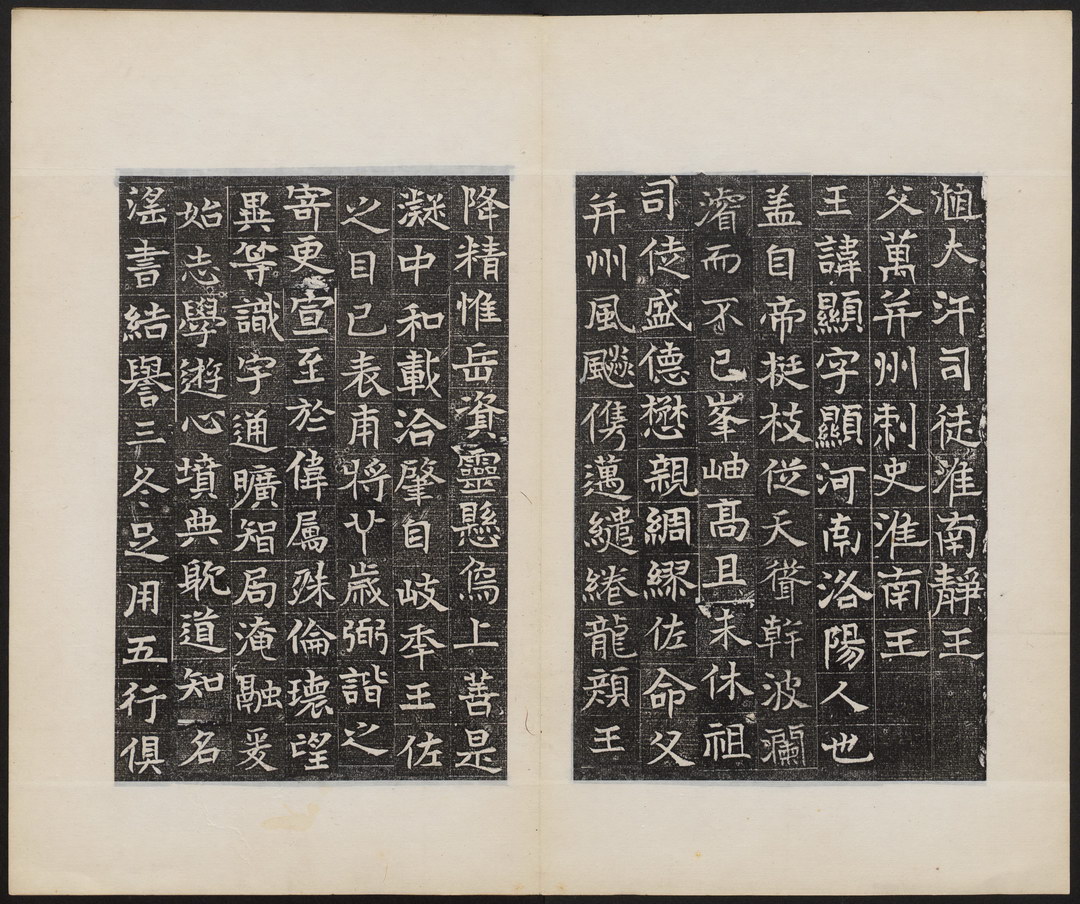 𣫍大汗司徒淮南靜王
父萬并州刾史淮南王
王諱顯字顯河南洛陽人也
盖自帝挺枝従天聳幹波瀾
濬而不已峯岫髙且未休祖
司徒盛德懋親綢繆佐命父
并州風飈儁邁繾綣龍顔王
降精惟岳資靈懸烏上善是
凝中和載洽肇自岐㐡王佐
之目已表甫將廿歳弼諧之
寄更宣至於偉属殊倫瓌望
異等識字通曠智局淹融爰
始志學遊心墳典躭道知名
滛書結譽三冬足用五行俱